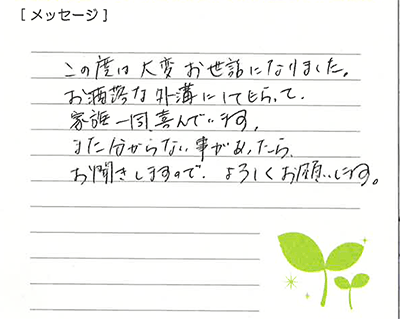 [メッセージ]
この度は大変お世話になりました。
お洒落な外溝にしてもらって、
家族一同喜んでいます。
また分からない事があったら、
お聞きしますので、よろしくお願いします。